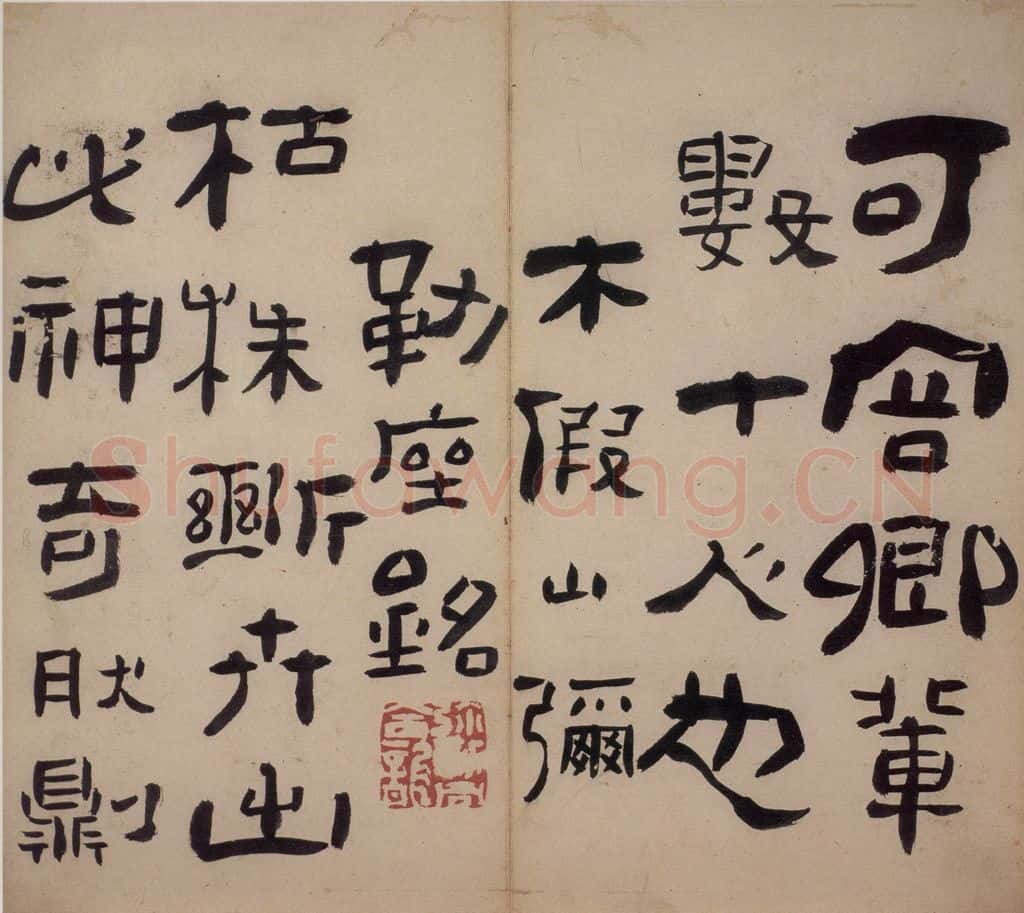 可容卿輩
數十人也
木假山彌
勒座銘
枯株斷卉出
此神奇肰則
Shufawang.CN